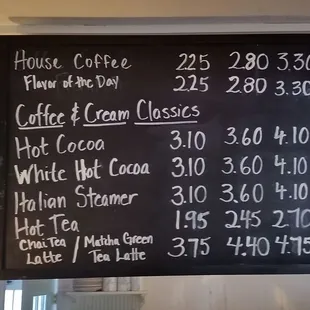 House Coffee 225 2.80 3.30
Flavor of the Day 2.25 2.80 3.30
Coffee & Cream Classics
Hot Cocoa 3.10 3.60 4.10
White Hot Cocoa 3.10 3.60 4.10
Italian Steamer 3.10 3.60 4.10
Hot Tea 1.95 2.45 2.70
Chai Tea Latte / Matcha Green Tea Latte 3.75 4.40 4.75